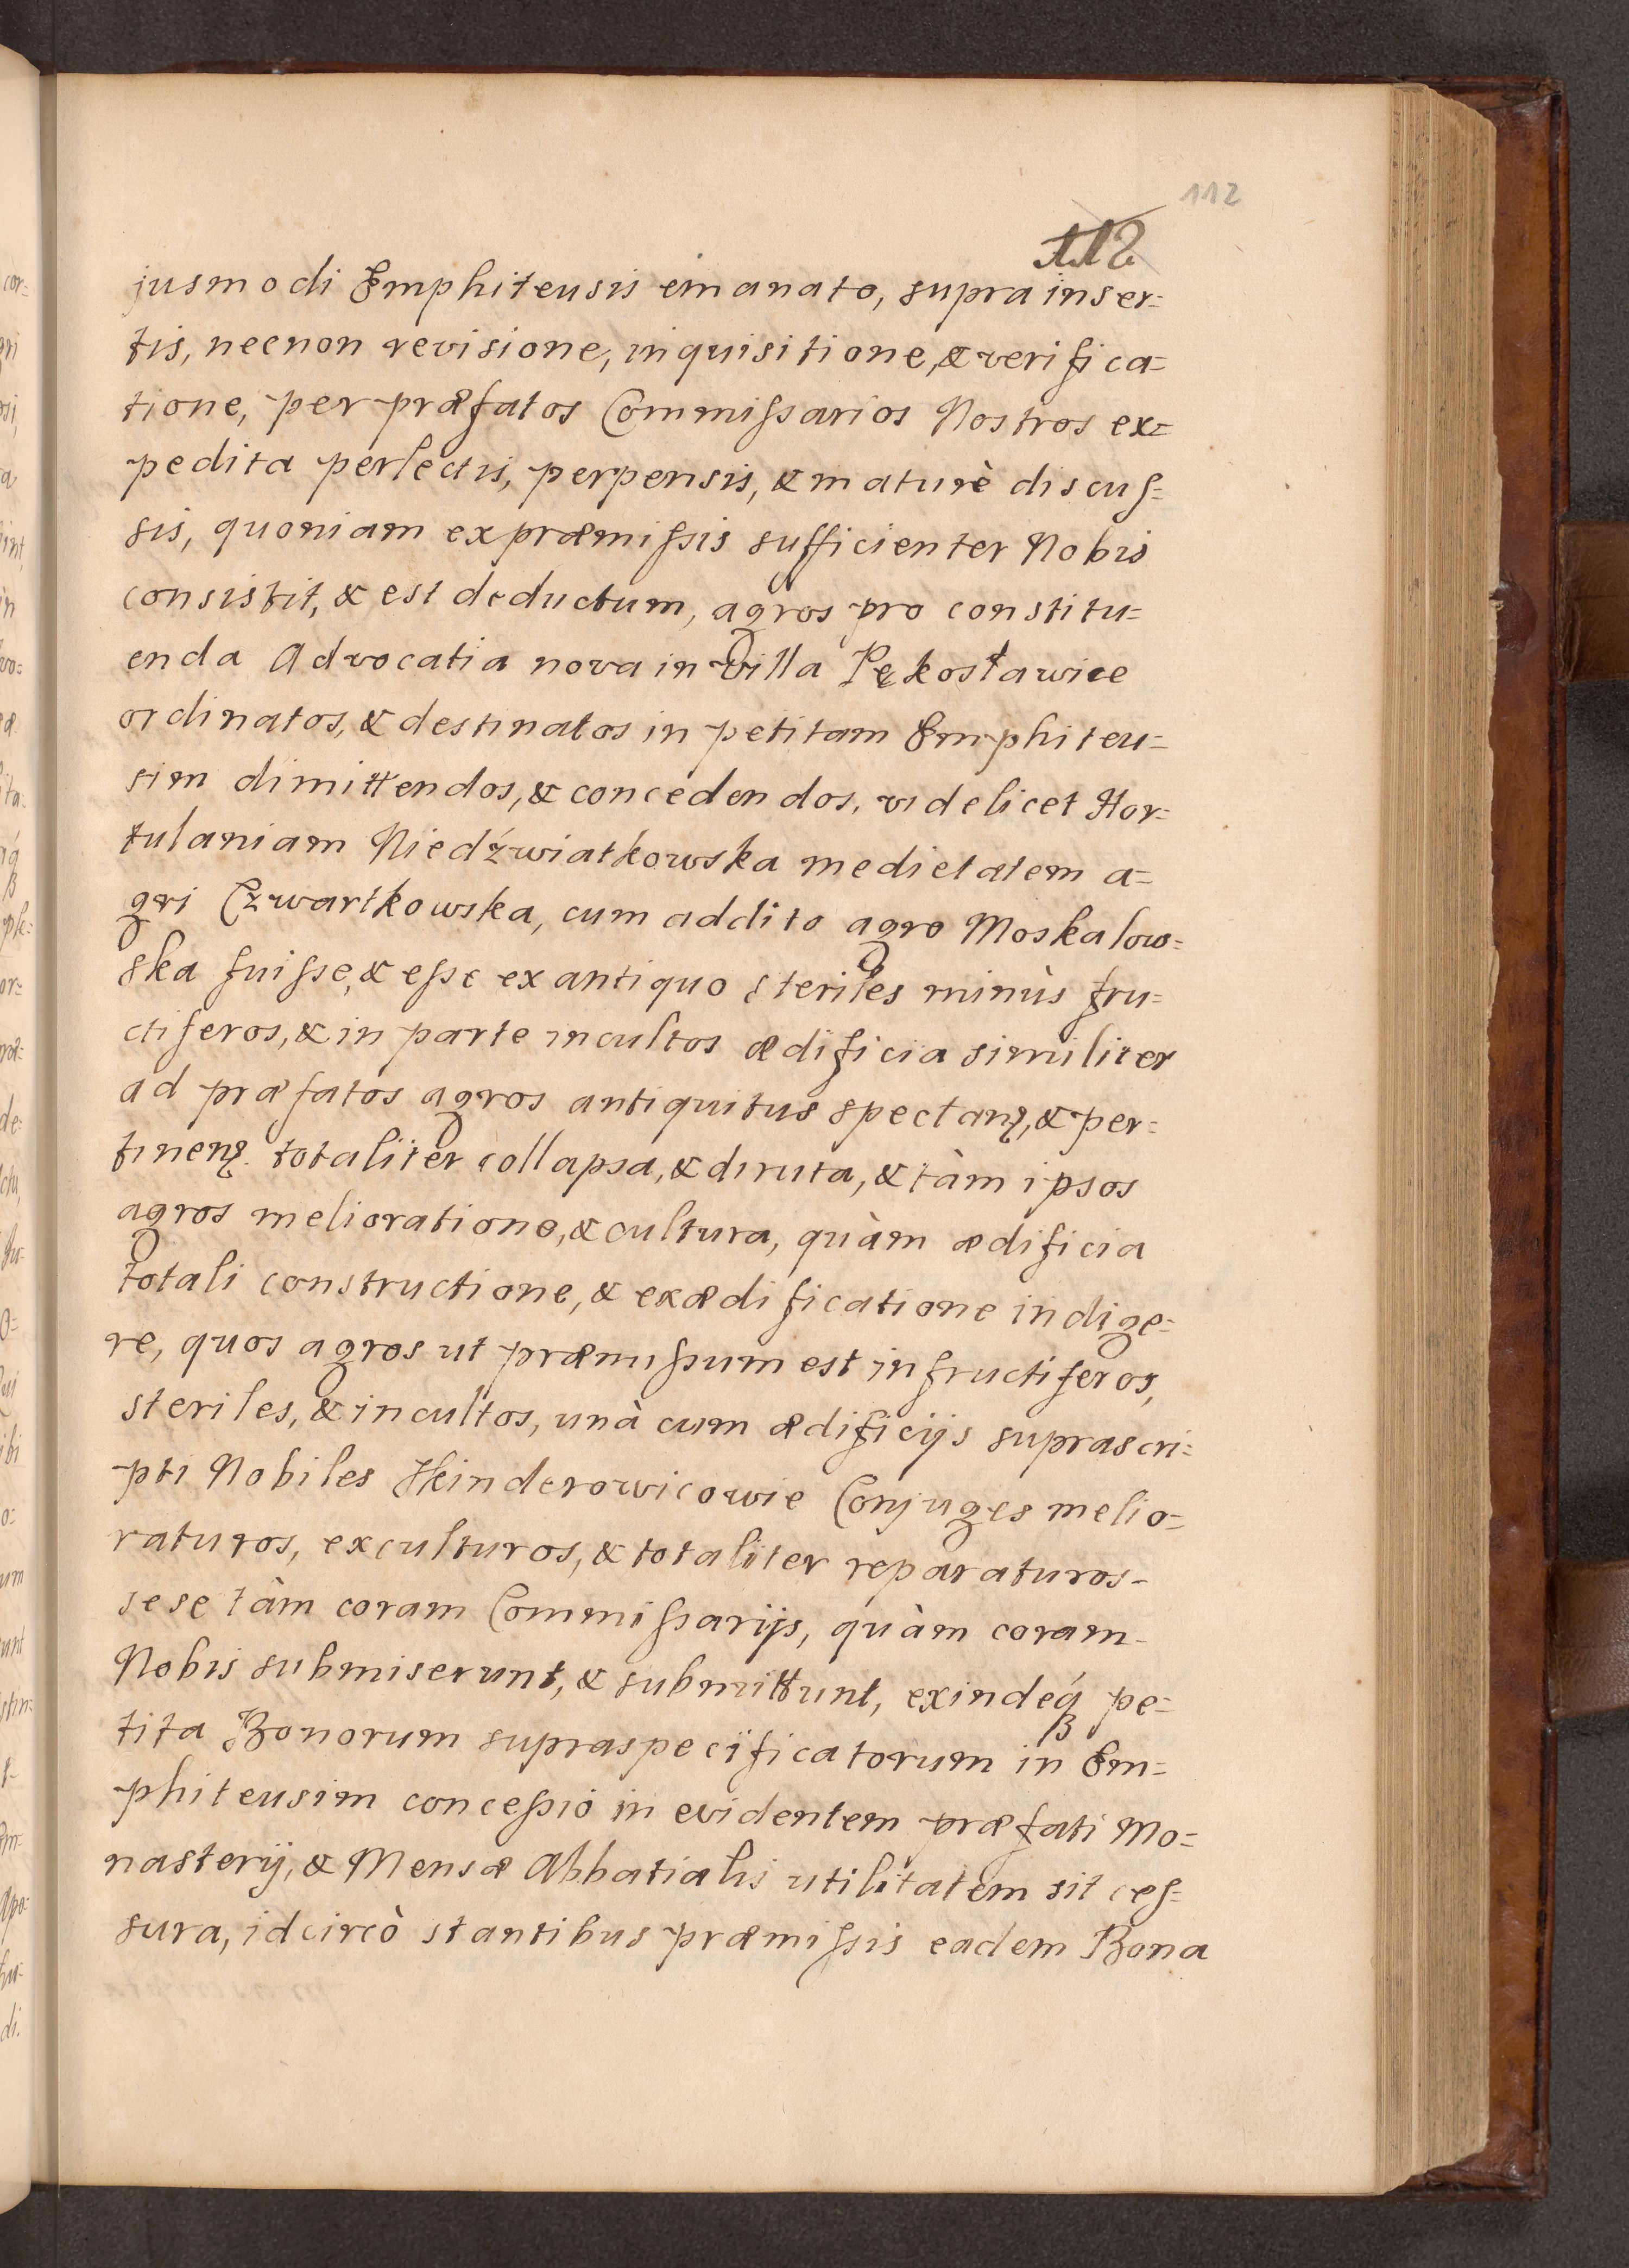 112
112
jusmodi Emphiteusis emanato, supra inser=
tis, necnon revisione, inquisitione, & verifica=
tione, per præfatos Commissarios Nostros ex=
pedita perlectis, perpensis, & maturè discus=
sis, quoniam ex præmissis sufficienter Nobis
consistit, & est deductum, agros pro constitu=
enda Advocatia nova in Villa Pękosławice
ordinatos, & destinatos in petitam Emphiteu=
sim dimittendos, & concedendos, videlicet Hor=
tulaniam Niedźwiatkowska medietatem a=
gri Czwartkowska, cum addito agro Moskalow=
ska fuisse, & esse ex antiquo steriles minùs fru=
ctiferos, & in parte incultos ædificia similiter
ad præfatos agros antiquitus spectanȝ, & per=
tinenȝ. totaliter collapsa, & diruta, & tàm ipsos
agros melioratione, & cultura, quàm ædificia
totali constructione, & exædificatione indige=
re, quos agros ut præmissum est infructiferos,
steriles, & incultos, unà cum ædificijs suprascri=
pti Nobiles Hinderowicowie Conjuges melio=
raturos, exculturos, & totaliter reparaturos-
sese tàm coram Commissarijs, quàm coram-
Nobis submiserunt, & submittunt, exindéq́ pe=
tita Bonorum supraspecificatorum in Em=
phiteusim concessio in evidentem præfati Mo=
nasterij, & Mensæ Abbatialis utilitatem sit ces=
sura, idcircò stantibus præmissis eadem Bona